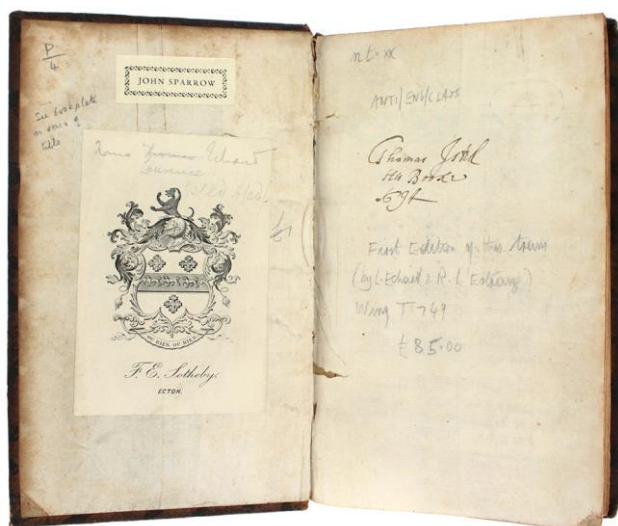 P
4
JOHN SPARROW
See bookplate
on verso of
title
Thomas Echard
OU RIEN OU BIEN
F. E. Sotheby.
ECTON.
nt-xx
ANTI/ENG/CLASS
Thomas
His Booke
First Edition of this trans
(by L. Echard & R. L'Estrange)
Wing T749
£85.00